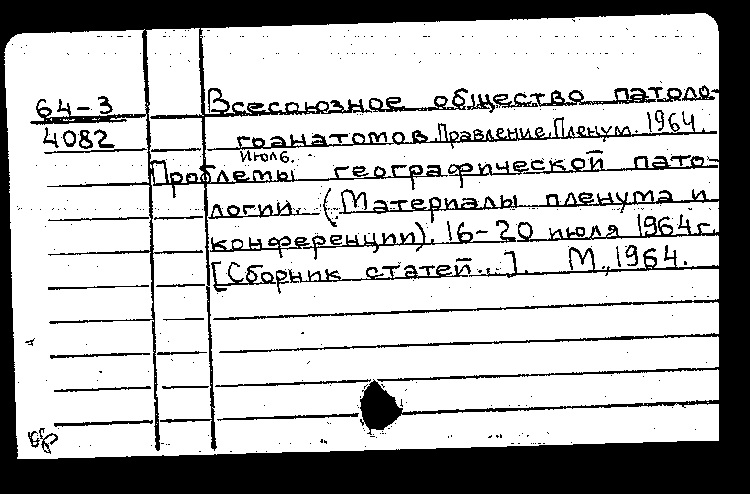 64-3
4082
Всесоюзное общество патоло-
гоанатомов. Правление. Пленум. 1964.
Июль.
Проблемы географической пато-
логии. (Материалы пленума и
конференции). 16-20 июля 1964 г.
[Сборник статей...]. М., 1964.